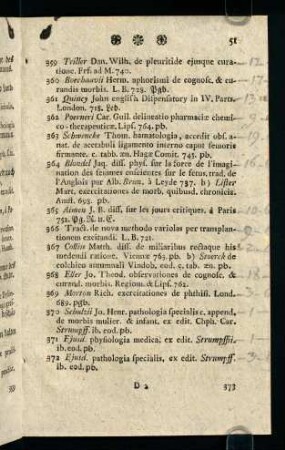 51
359 Triller Dan. Wilh. de pleuritide ejusque curatione. Frf. ad M. 740.
360 Boerhaavii Herm. aphorismi de cognosc. & curandis morbis. L. B. 728. Pgb.
361 Quincy John english's Dispensatory in IV. Parts. London. 718. Leb.
362 Poerneri Car. Guil. delineatio pharmaciæ chemico-therapeuticæ. Lips. 764. pb.
363 Schwencke Thom. hæmatologia, accedit obs. anat. de acetaboli ligamento interno caput femoris firmante. c. tabb. æn. Hagæ Comit. 743. pb.
364 Blondel Jaq. diss. phys. sur la force de l'imagination des femmes enceintes sur le fetus, trad. de l'Anglois par Alb. Brun. à Leyde 737. b) Lister Mart. exercitationes de morb. quibusd. chronicis. Amst. 698. pb.
365 Aimen J. B. diss. sur les jours critiques. à Paris 751.
366 Tract. de nova methodo variolas per transplantationem excitandi. L. B. 721.
367 Collin Matth. diss. de miliaribus restaque his medendi ratione. Viennæ 763. pb. b) Stoerck de colchico autumnali Vindob. eod. c. tab. æn. pb.
368 Eller Jo. Theod. observationes de cognosc. & curand. morbis. Regiom. & Lips. 762.
369 Morton Rich. exercitationes de phthisi. Lond. 689. pgb.
370 Schulzii Jo. Henr. pathologia specialis c. append. de morbis mulier. & infant. ex edit. Chph. Car. Strumpff. ib. eod. pb.
371 Ejusd. physiologia medica, ex edit. Strumpffii. ib. eod. pb.
372 Ejusd. pathologia specialis, ex edit. Strumpff. ib. eod. pb.
D 2
373